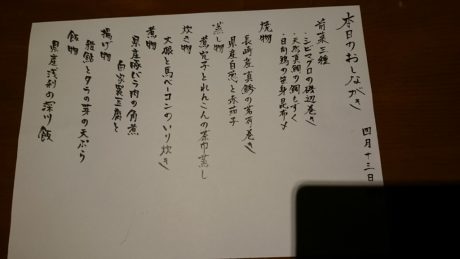 本日のおしながき
四月十三日
前菜三種
・シビマグロの磯辺巻き
・天然真鯛の鯛もずく
・日向鶏の笹身昆布〆
焼物
長崎産真鯵の蕎麦巻き
県産白葱と赤茄子
蒸し物
筍とれんこんの茶巾蒸し
炊き物
大根と馬ベーコンのいり炊き
煮物
県産豚ばら肉の角煮
自家製豆腐と
揚げ物
稚鮎とタラの芽の天ぷら
飯物
県産浅利の深川飯